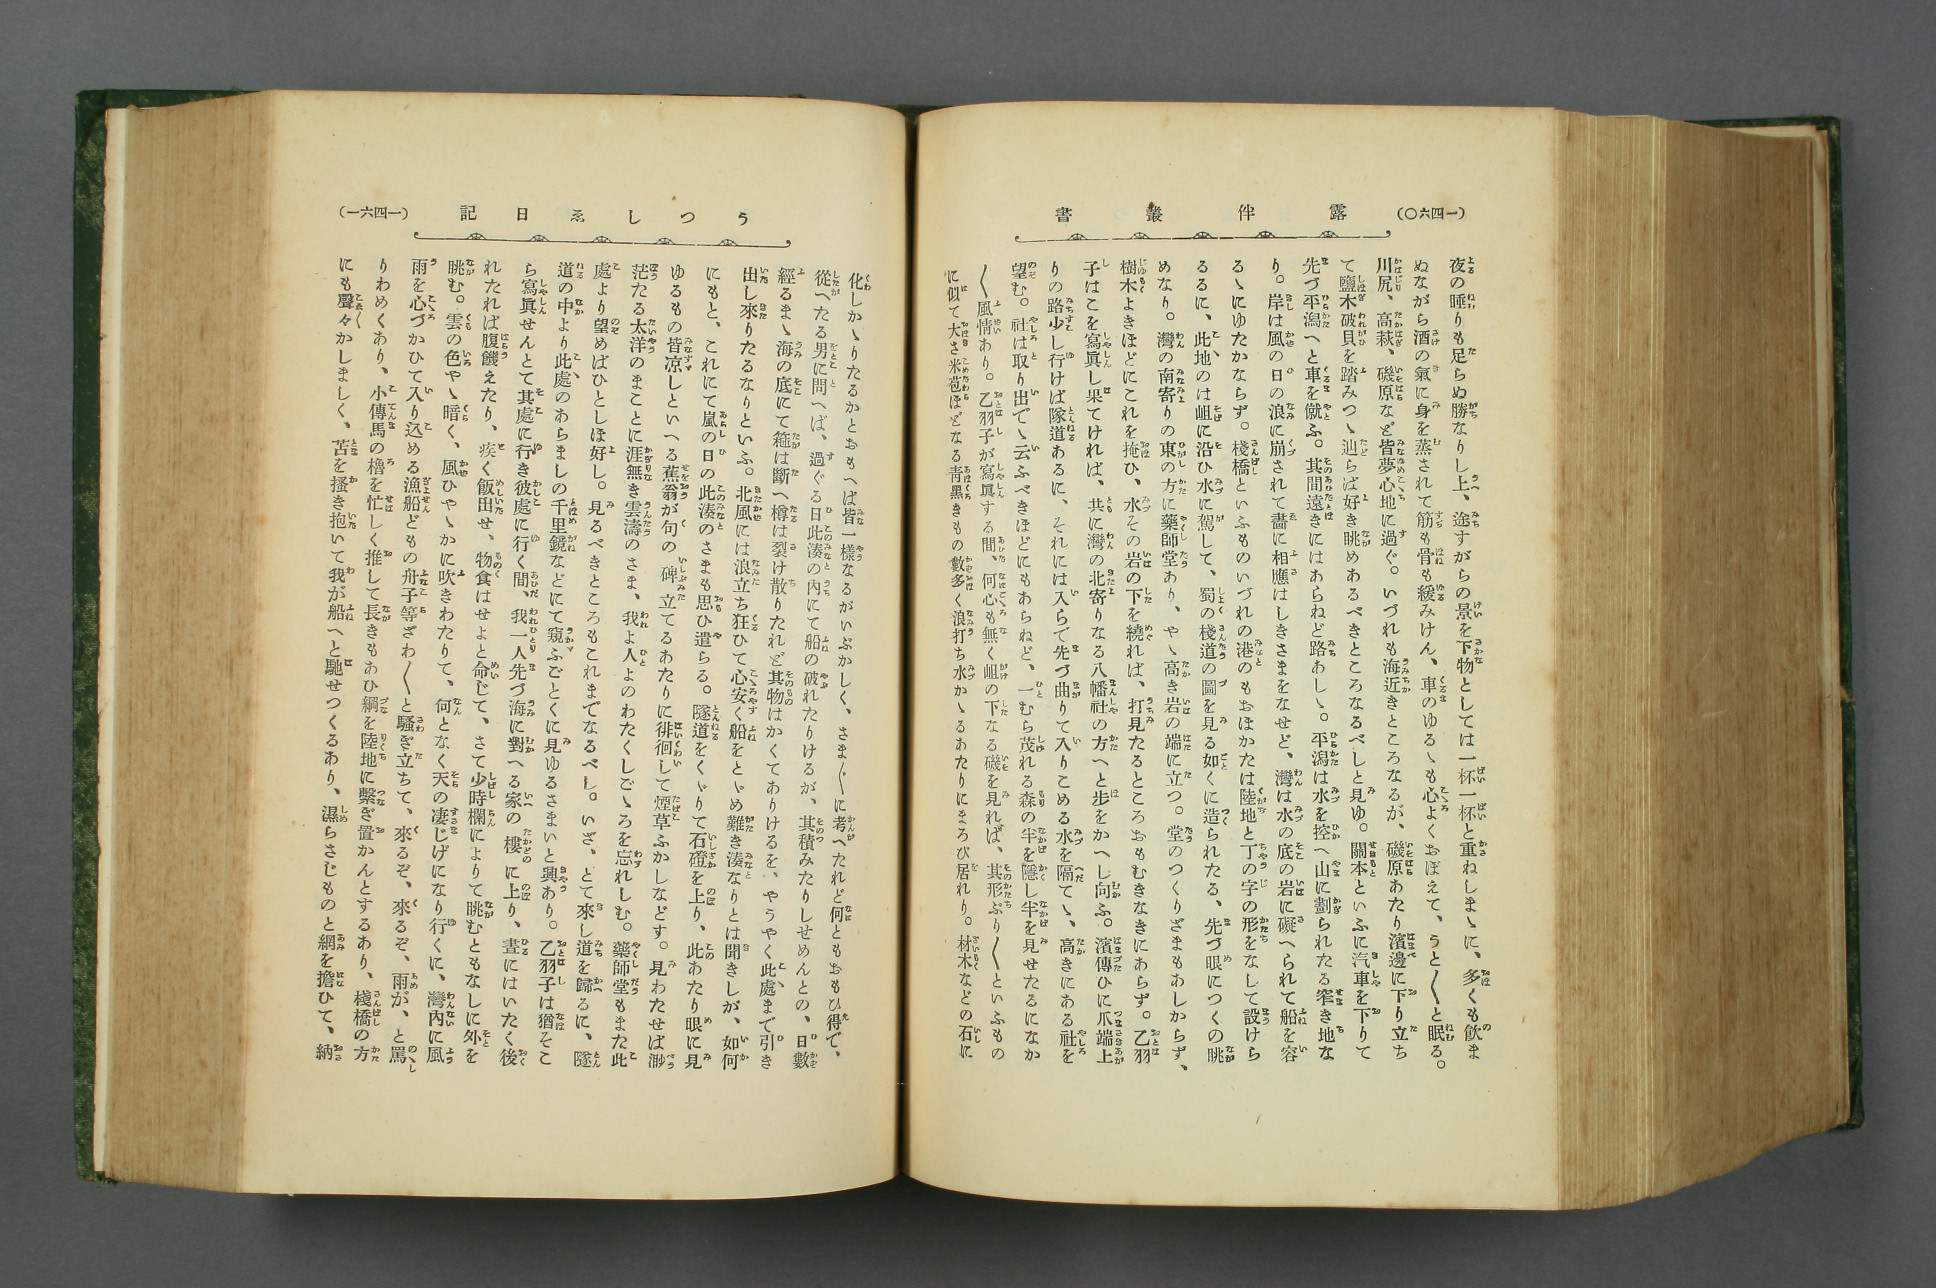 (一四六〇)
露伴叢書
夜の睡りも足らぬ勝なりし上、途すがらの景を下物としては一杯一杯と重ねしまゝに、多くも飲ま
ぬながら酒の氣に身を蒸されて筋も骨も緩みけん、車のゆるゝも心よくおぼえて、うと〳〵と眠る。
川尻、高萩、磯原など皆夢心地に過ぐ。いづれも海近きところなるが、磯原あたり濱邊に下り立ち
て鹽木破貝を踏みつゝ辿らば好き眺めあるべきところなるべしと見ゆ。關本といふに汽車を下りて
先づ平潟へと車を僦ふ。其間遠きにはあらねど路あしゝ。平潟は水を控へ山に劃られたる窄き地な
り。岸は風の日の浪に崩されて畵に相應はしきさまをなせど、灣は水の底の岩に礙へられて船を容
るゝにゆたかならず。棧橋といふものいづれの港のもおほかたは陸地と丁の字の形をなして設けら
るるに、此地のは岨に沿ひ水に駕して、蜀の棧道の圖を見る如くに造られたる、先づ眼につくの眺
めなり。灣の南寄りの東の方に藥師堂あり、やゝ高き岩の端に立つ。堂のつくりざまもあしからず、
樹木よきほどにこれを掩ひ、水その岩の下を繞れば、打見たるところおもむきなきにあらず。乙羽
子はこを寫眞し果てければ、共に灣の北寄りなる八幡社の方へと步をかへし向ふ。濱傳ひに爪端上
りの路少し行けば隧道あるに、それには入らで先づ曲りて入りこめる水を隔てゝ、高きにある社を
望む。社は取り出でゝ云ふべきほどにもあらねど、一むら茂れる森の半を隱し半を見せたるになか
〳〵風情あり。乙羽子が寫眞する間、何心も無く岨の下なる磯を見れば、其形ぶり〳〵といふもの
に似て大さ米苞ほどなる靑黑きもの數多く浪打ち水かゝるあたりにまろび居れり。材木などの石に
うつしゑ日記
(一四六一)
化しかゝりたるかとおもへば皆一樣なるがいぶかしく、さま〴〵に考へたれど何ともおもひ得で、
從へたる男に問へば、過ぐる日此湊の內にて船の破れたりけるが、其積みたりしせめんとの、日數
經るまゝ海の底にて箍は斷へ樽は裂け散りたれど其物はかくてありけるを、やうやく此處まで引き
出し來りたるなりといふ。北風には浪立ち狂ひて心安く船をとゞめ難き湊なりとは聞きしが、如何
にもと、これにて嵐の日の此湊のさまも思ひ遣らる。隧道をくゞりて石磴を上り、此あたり眼に見
ゆるもの皆凉しといへる蕉翁が句の碑立てるあたりに徘徊して煙草ふかしなどす。見わたせば渺
茫たる太洋のまことに涯無き雲濤のさま、我よ人よのわたくしごゝろを忘れしむ。藥師堂もまた此
處より望めばひとしほ好し。見るべきところもこれまでなるべし。いざ、とて來し道を歸るに、隧
道の中より此處のあらましの千里鏡などにて窺ふごとくに見ゆるさまいと興あり。乙羽子は猶そこ
ら寫眞せんとて其處に行き彼處に行く間、我一人先づ海に對へる家の樓に上り、晝にはいたく後
れたれば腹饑えたり、疾く飯出せ、物食はせよと命じて、さて少時欄によりて眺むともなしに外を
眺む。雲の色やゝ暗く、風ひやゝかに吹きわたりて、何となく天の凄じげになり行くに、灣內に風
雨を心づかひて入り込める漁船どもの舟子等ざわ〳〵と騷ぎ立ちて、來るぞ、來るぞ、雨が、と罵
りわめくあり、小傳馬の櫓を忙しく推して長きもあひ綱を陸地に繫ぎ置かんとするあり、棧橋の方
にも聲々かしましく、苫を搔き抱いて我が船へと馳せつくるあり、濕らさじものと網を擔ひて、納